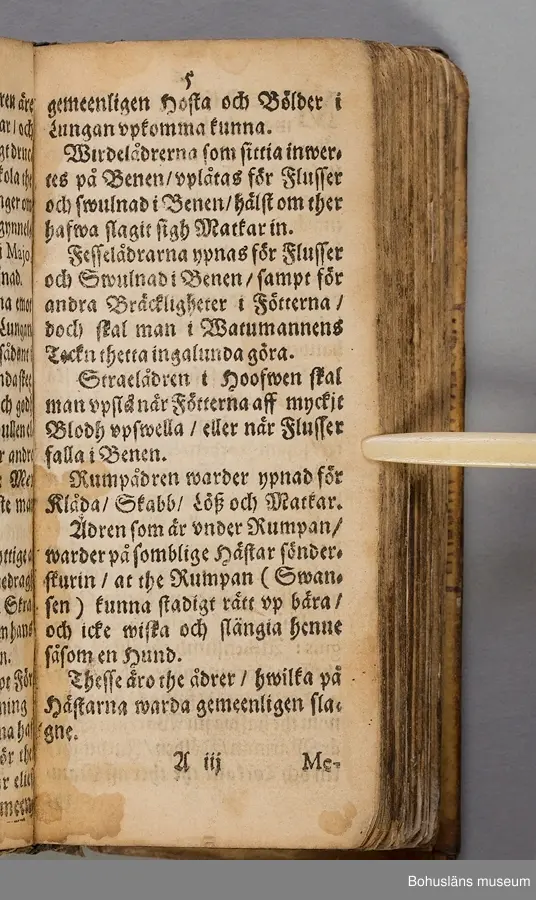 5
gemeenligen Hosta och Bölder i
Lungan vpkomma kunna.
Wirdelådrerna som sittia inwer-
tes på Benen/ vplåtas för Flusser
och swulnad i Benen/ hälst om ther
hafwa slagit sigh Matkar in.
Fesselådrarna ypnas för Flusser
och Swulnad i Benen / sampt för
andra Bräckligheter i Fötterna /
doch skal man i Watumannens
Teckn thetta ingalunda göra.
Straelådren i Hoofwen skal
man vpslå när Fötterna aff myckit
Blodh vpswella / eller när Flusser
falla i Benen.
Rumpådren warder ypnad för
Klåda/ Skabb/ Löß och Matkar.
Ådren som är vnder Rumpan/
warder på somblige Hästar sönder-
skurin / at the Rumpan ( Swan-
sen ) kunna stadigt rätt vp bära/
och icke wiska och slängia henne
såsom en Hund.
Thesse äro the ådrer / hwilka på
Hästarna warda gemeenligen sla-
gne.
A iij Me-
Bohusläns museum